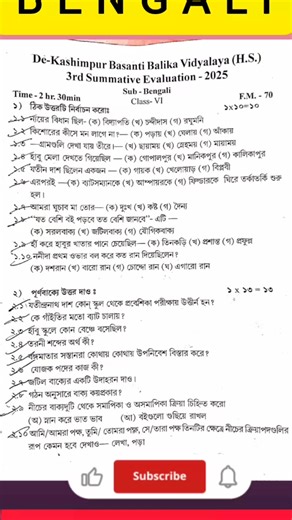 BENGALI
De-Kashimpur Basanti Balika Vidyalaya (H.S.)
3rd Summative Evaluation - 2025
Sub - Bengali
Time - 2 hr. 30min
Class- VI
F.M. - 70
১) ঠিক উত্তরটি নির্বাচন করোঃ
১x১০=১০
১.১ নাঁয়ের বিধান ছিল- (ক) বিদ্যাপতি (খ) চন্দীদাস (গ) রঘুমনি
১.২ কিশোরের কীসে মন লাগে না?— (ক) পড়ায় (খ) খেলায় (গ) আঁকায়
১.৩ —গ্রামগুলি দেখা যায় তীরে।— (ক) ছায়াময় (খ) স্নেহময় (গ) মায়াময়
১.৪ হাঁবু মেলা দেখতে গিয়েছিল — (ক) গোপালপুর (খ) মানিকপুর (গ) কালিকাপুর
১.৫ যতীন দাশ ছিলেন একজন — (ক) গায়ক (খ) খেলোয়াড় (গ) বিপ্লবী
১.৬ এরপরই —(ক) ব্যাটসম্যানকে (খ) আম্পায়রকে (গ) ফিল্ডারকে ঘিরে তর্কাতর্কি শুরু
হল।
১.৭ আমরা ঘুচাব মা তোর— (ক) দুঃখ (খ) কষ্ট (গ) দৈন্য
১.৮ "যত বেশি বই পড়বে তত বেশি জানবে"- এটি —
(ক) সরলবাক্য (খ) জটিলবাক্য (গ) যৌগিকবাক্য
১.৯ হাঁ করে হাবুর খাতার পানে চেয়েছিল — (ক) তিনকড়ি (খ) প্রশান্ত (গ) প্রফুল্ল
১.১০ ননীদা প্রথম ওভার বল করে কত রান দিয়েছিলেন?
(ক) দশরান (খ) বারো রান (গ) চোদ্দো রান (ঘ) এগারো রান
২) পূর্ণবাক্যে উত্তর দাও ঃ
১ x ১০ = ১০
২.১ যতীন্দ্রনাথ দাশ কোন্ স্কুল থেকে প্রবেশিকা পরীক্ষায় উত্তীর্ন হন?
২.২ কে গাঁইতির মতো ব্যাট চালায়?
২.৩ হাঁবু স্কুলে কোন বেঞ্চে বসেছিল?
২.৪ তরনী শব্দের অর্থ কী?
২.৫ বঙ্গমাতার সন্তানরা কোথায় কোথায় উপনিবেশ বিস্তার করে?
২.৬ যোজক পদের কাজ কী?
২.৭ জটিল বাক্যের একটি উদাহরন দাও।
২.৮ গঠন অনুসারে বাক্য কয়প্রকার?
২.৯ নীচের বাক্যদুটি থেকে সমাপিকা ও অসমাপিকা ক্রিয়া চিহ্নিত করো
(অ) স্নান করে ভাত খাব (আ) বইগুলো গুছিয়ে রাখল
২.১০ আমি/আমরা পক্ষ, তুমি/ তোমরা পক্ষ, সে/তারা পক্ষ তিনটির ক্ষেত্রে নীচের ক্রিয়াপদগুলির
রূপ কেমন হবে দেখাও— লেখা, পড়া
Subscribe